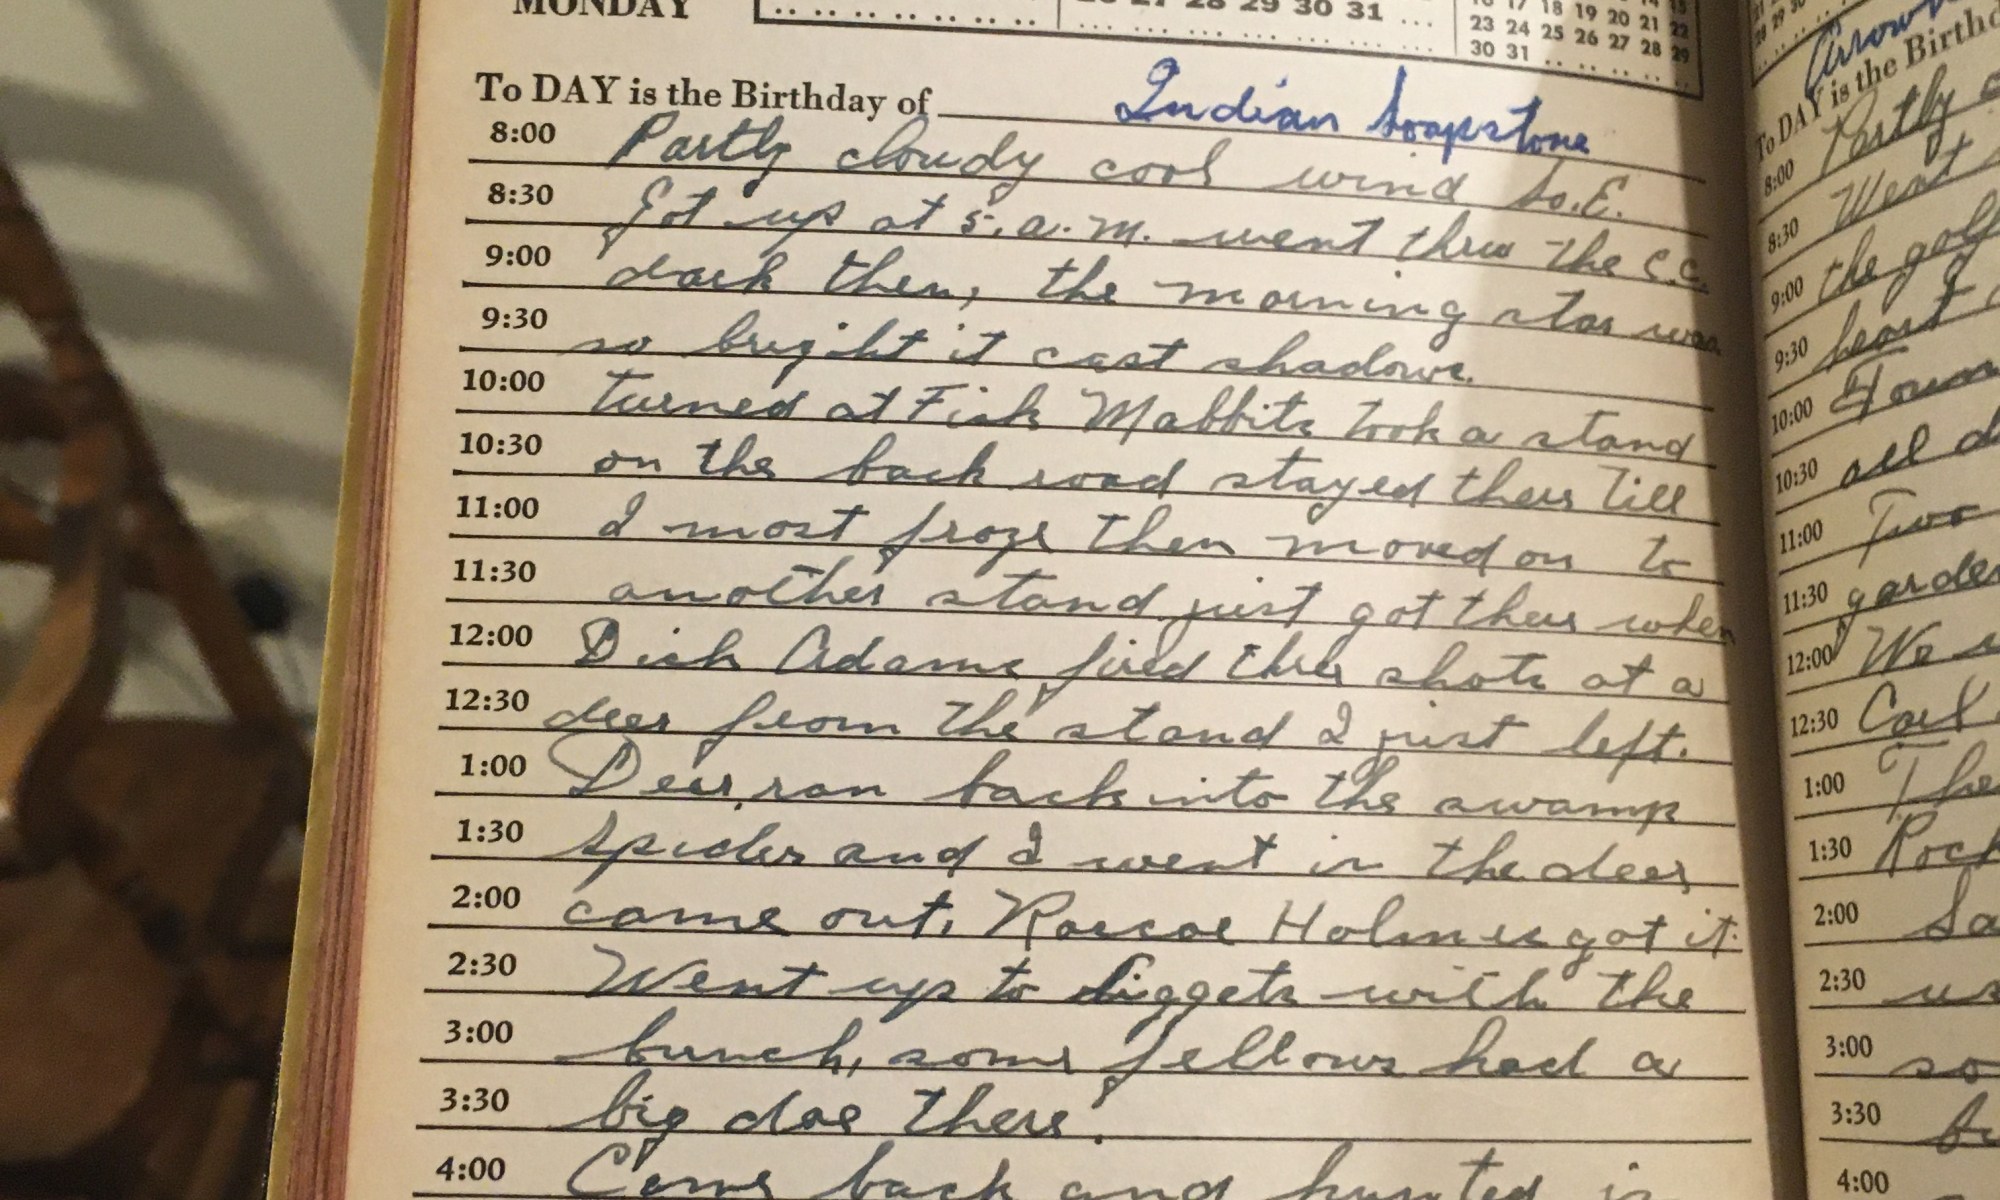 MONDAY
26 27 28 29 30 31
16 17 18 19 20 21 22
23 24 25 26 27 28 29
30 31
To DAY is the Birthday of Indian Soapstone
8:00 Partly cloudy cool wind So.E.
8:30 Got up at 5.a.m. went thru the C.C.
9:00 dark then, the morning star was
9:30 so bright it cast shadows.
10:00 Turned at Fisk Mabbits took a stand
10:30 on the back road stayed there till
11:00 I most froze then moved on to
11:30 another stand just got there when
12:00 Dick Adams fired three shots at a
12:30 deer from the stand I just left.
1:00 Deer ran back into the swamp
1:30 Spider and I went in the deer
2:00 came out, Roscoe Holmes got it.
2:30 Went up to Liggets with the
3:00 bunch, some fellows had a
3:30 big doe there.
4:00 Came back and hunted
To DAY is the Birthd
8:00 Partly
8:30 Went
9:00 the golf
9:30 heart
10:00
10:30 all d
11:00 Two
11:30 garden
12:00 We
12:30 Carl
1:00 The
1:30 Rock
2:00 Sa
2:30 us
3:00 so
3:30
4:00